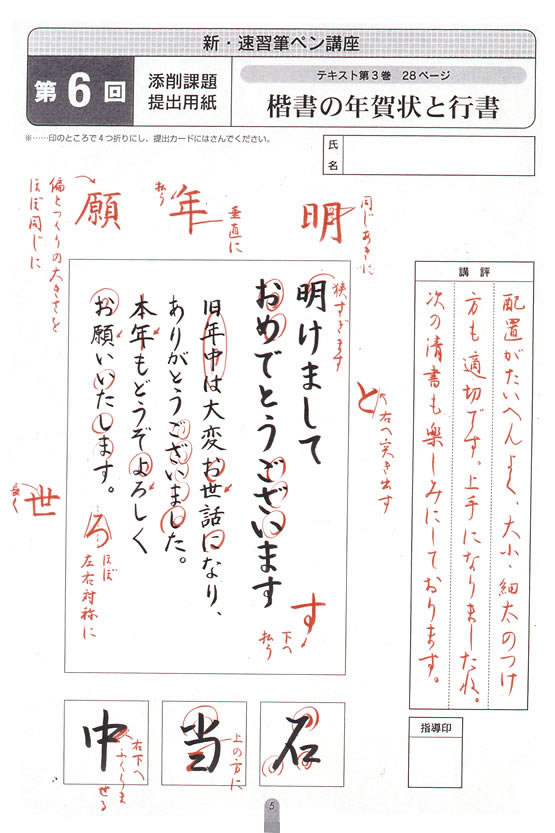 新・速習筆ペン講座
第6回
添削課題
提出用紙
テキスト第3巻 28ページ
楷書の年賀状と行書
※……印のところで4つ折りにし、提出カードにはさんでください。
氏名
明
同じあきに
年
払う
垂直に
願
偏とつくりの大きさを
ほぼ同じに
講評
配置がたいへんよく、大小・細太のつけ
方も適切です。上手になりましたね。
次の清書も楽しみにしております。
明けまして
狭すぎます
おめでとうございます
旧年中は大変お世話になり、
ありがとうございました。
本年もどうぞよろしく
お願いいたします。
と
右へ突き出す
す
下へ
払う
ろ
ほぼ
左右対称に
世
長く
石
当
上の方に
中
右下へ
ふくらま
せる
指導印
5